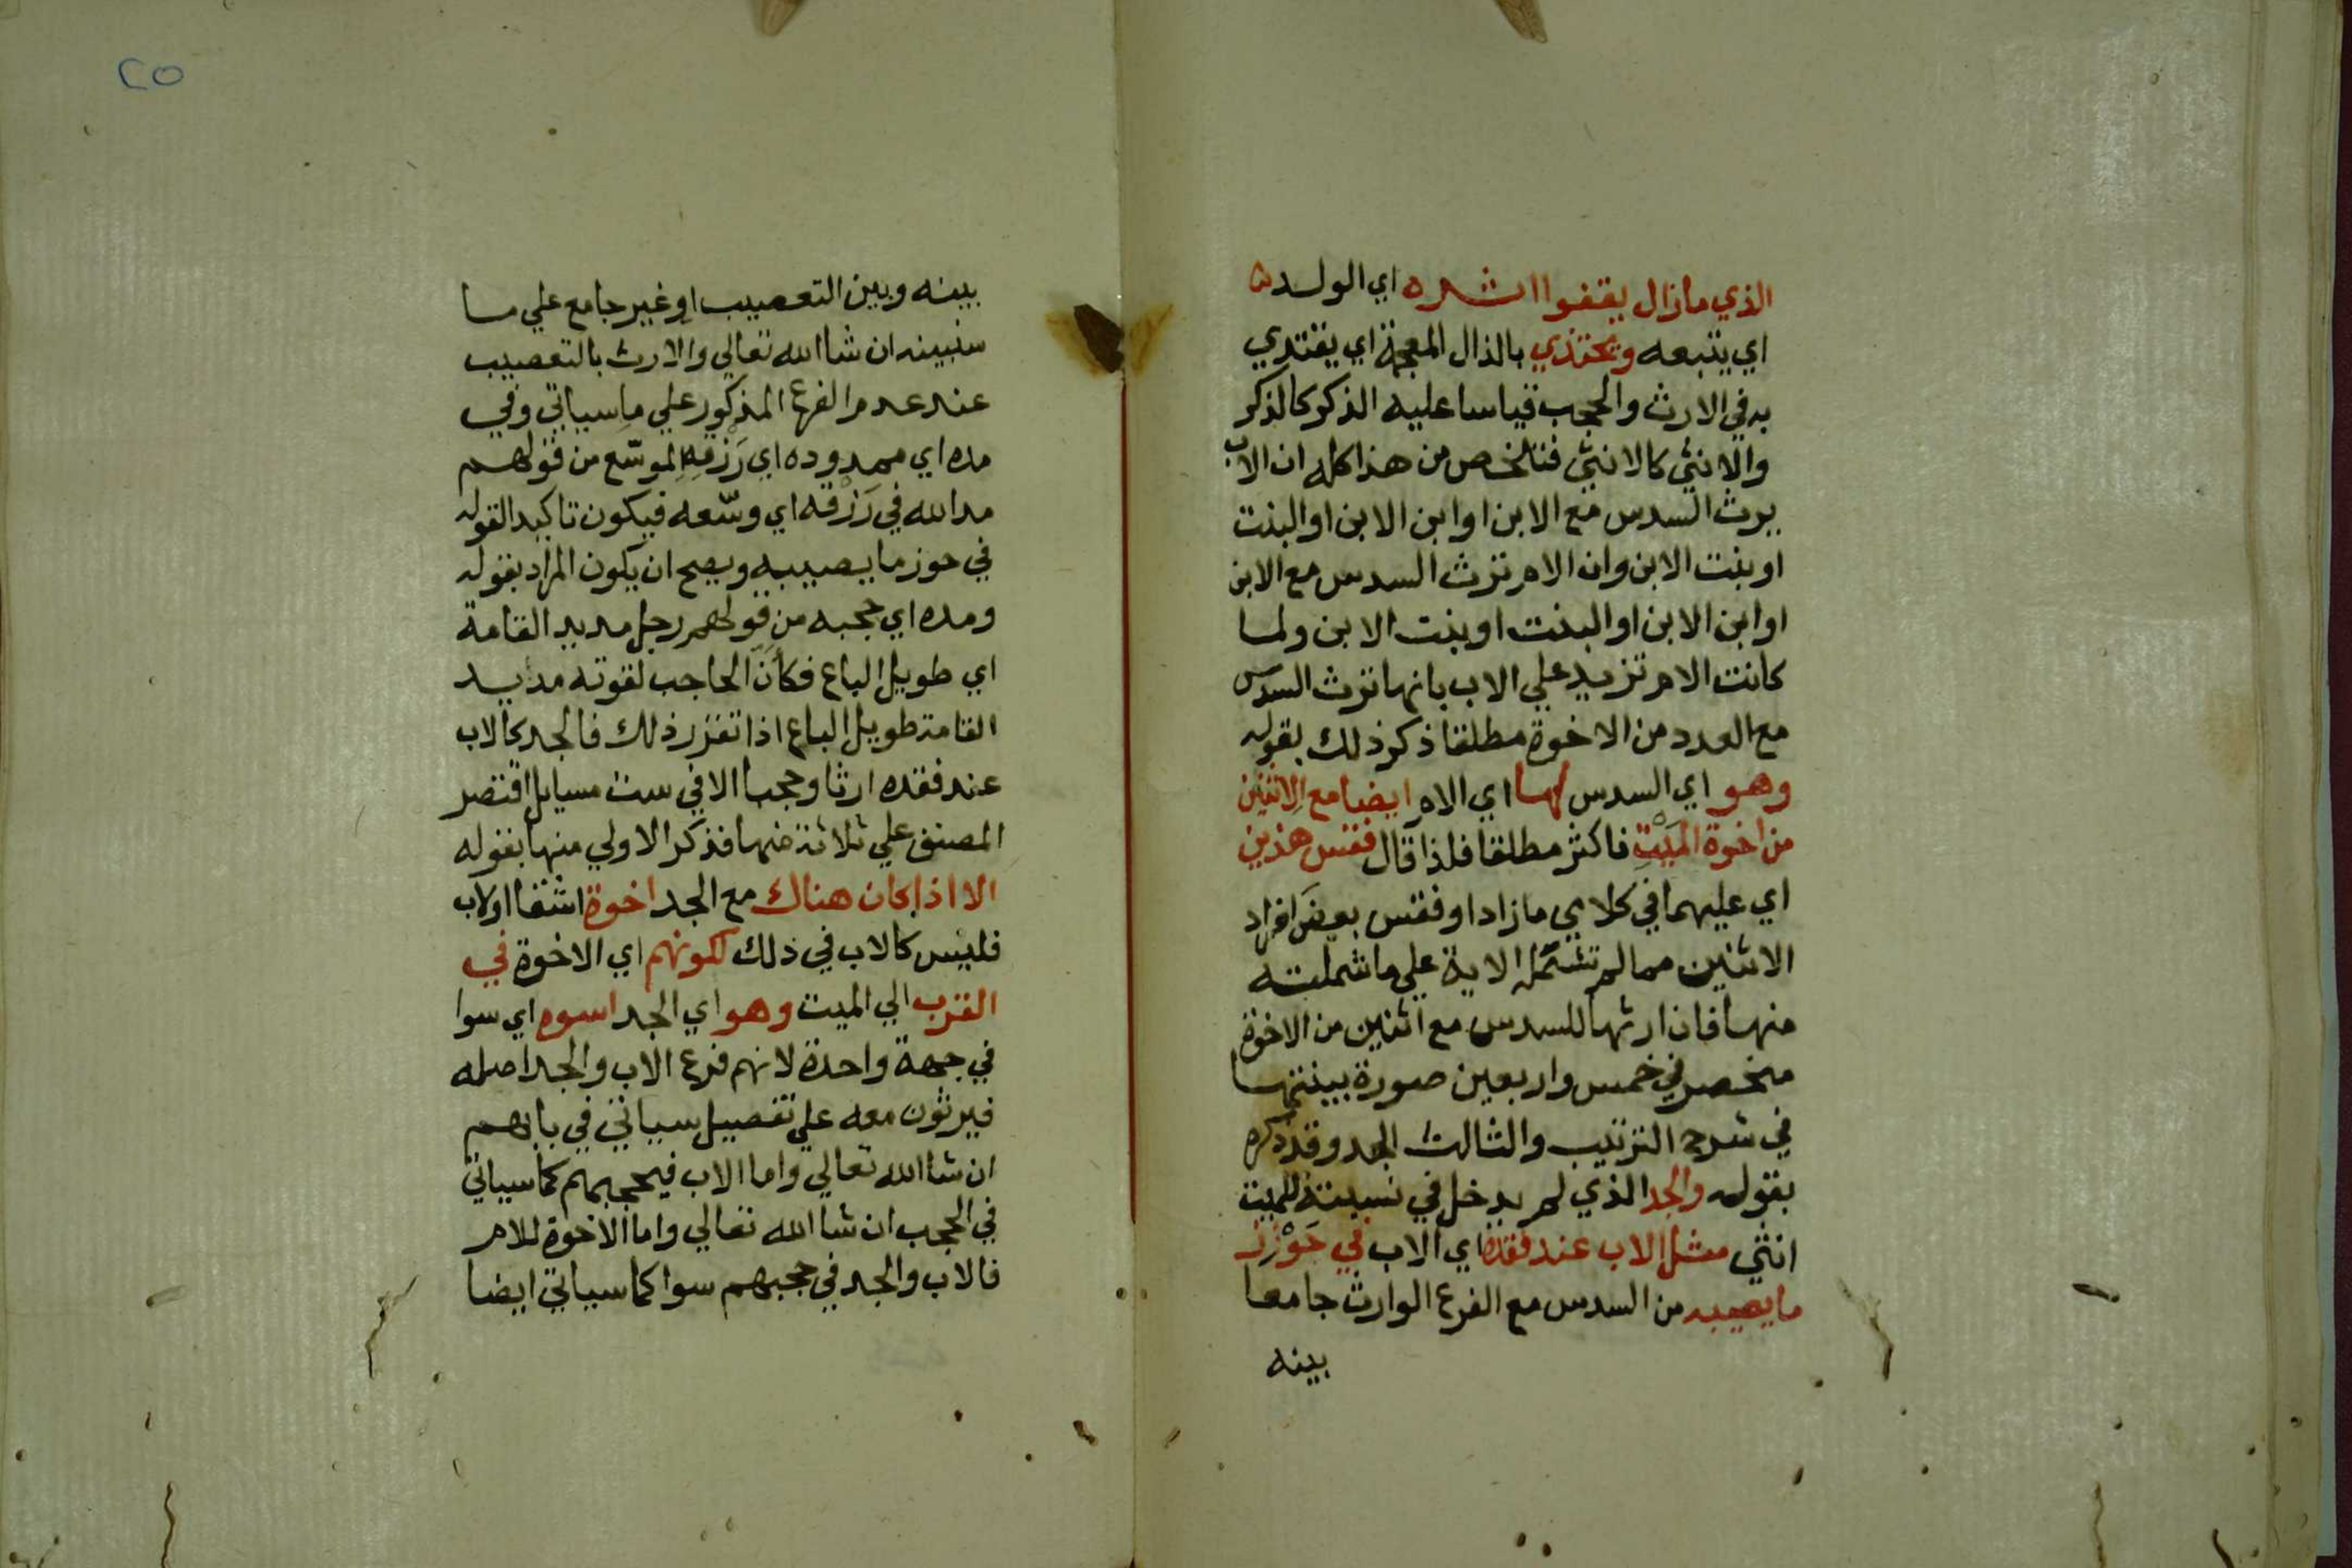 الذي مازال يقفوا اثره اي الولد ه
اي يتبعه ويحتذي بالذال المعجمة اي يقتدي
به في الارث والحجب قياسا عليه الذكر كالذكر
والانثي كالانثي فتلخص من هذا كله ان الاب
يرث السدس مع الابن او ابن الابن او البنت
او بنت الابن وان الام ترث السدس مع الابن
او ابن الابن او البنت او بنت الابن ولما
كانت الام تزيد علي الاب بانها ترث السدس
مع العدد من الاخوة مطلقا ذكر ذلك بقوله
وهو اي السدس لها اي الام ايضا مع الاثنين
من اخوة الميْتِ فاكثر مطلقا فلذا قال فقس هذين
اي عليهما في كلامي مازاد او فقس بعض افراد
الاثنين مما لم تشمله الاية علي ما شملته
منها فان ارثها للسدس مع اثنين من الاخوة
منحصر في خمس واربعين صورة بينتها
في شرح الترتيب والثالث الجد وقد ذكره
بقوله والجد الذي لم يدخل في نسبته للميت
انثي مثل الاب عند فقده اي الاب في حَوْزِ
ما يصيبه من السدس مع الفرع الوارث جامعا
بينه
٢٥
بينه وبين التعصيب او غير جامع علي ما
سنبينه ان شا الله تعالي والارث بالتعصيب
عند عدم الفرع المذكور علي ما سياتي وفي
مده اي ممدوده اي رَزْقِهِ الموسّع من قولهم
مد الله في رَزْقه اي وسّعه فيكون تاكيدا لقوله
في حوز ما يصيبه ويصح ان يكون المراد بقوله
ومده اي حجبه من قولهم رجل مديد القامة
اي طويل الباع فكأنّ الحاجب لقوته مديد
القامة طويل الباع اذا تقرر ذلك فالجد كالاب
عند فقده ارثا وحجبا الا في ست مسايل اقتصر
المصنف علي ثلاثة منها فذكر الاولي منها بقوله
الا اذا كان هناك مع الجد اخوة اشقا او لاب
فليس كالاب في ذلك لكونهم اي الاخوة في
القرب الي الميت وهو اي الجد اسوه اي سوا
في جهة واحدة لانهم فرع الاب والجد اصله
فيرثون معه علي تفصيل سياتي في بابهم
ان شا الله تعالي واما الاب فيحجبهم كما سياتي
في الحجب ان شا الله تعالي واما الاخوة للام
فالاب والجد في حجبهم سوا كما سياتي ايضا